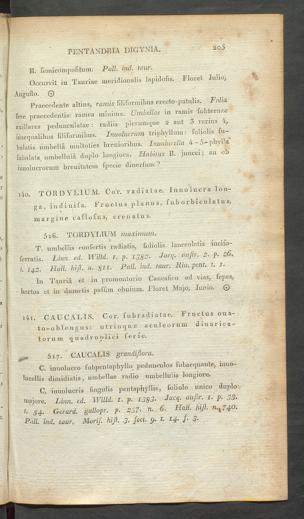 PENTANDRIA DIGYNIA. 205
B. ſemicompoſitum. Pall. ind. taur.
Occurrit in Tauriae meridionalis lapidoſis. Floret Julio,
Auguſto. ☉
Praecedente altius, ramis filiformibus erecto-patulis. Folia
fere praecedentis: ramea minima. Umbellae in ramis ſubterna
axillares pedunculatae: radiis plerumque 2 aut 3 rarius 4,
inaequalibus filiformibus. Involucrum triphyllum: foliolis ſu-
bulatis umbella multoties brevioribus. Involucella 4-5-phylla
ſubulata, umbellulâ duplo longiora. Habitus B. juncei; an ob
involucrorum brevitatem ſpecie diverſum?
140. TORDYLIUM. Cor. radiatae. Involucra lon-
ga, indiviſa. Fructus planus, ſuborbiculatus,
margine calloſus, crenatus.
516. TORDYLIUM maximum.
T. umbellis confertis radiatis, foliolis lanceolatis inciſo-
ſerratis. Linn. ed. Willd. 1. p. 1382. Jacq. auſtr. 2. p. 26.
t. 142. Hall. hiſt. n. 811. Pall. ind. taur. Riv. pent. t. 1.
In Tauriâ et in promontorio Caucaſico ad vias, ſepes,
hortos et in dumetis paſſim obvium. Floret Majo, Junio. ☉
141. CAUCALIS. Cor. ſubradiatae. Fructus ova-
to-oblongus: utrinque aculeorum divarica-
torum quadruplici ſerie.
517. CAUCALIS grandiflora.
C. involucro ſubpentaphyllo pedunculos ſubaequante, invo-
lucellis dimidiatis, umbellae radio umbellulis longiore.
C. involucris ſingulis pentaphyllis, foliolo unico duplo
majore. Linn. ed. Willd. 1. p. 1383. Jacq. auſtr. 1. p. 33.
t. 54. Gerard. gallopr. p. 237. n. 6. Hall. hiſt. n. 740.
Pall. ind. taur. Moriſ. hiſt. 3. ſect. 9. t. 14. f. 3.